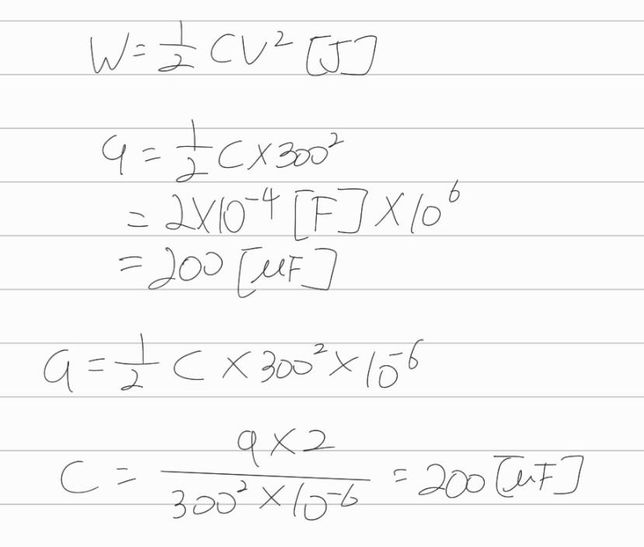 W = 1/2 CV² [J]
9 = 1/2 C × 300²
= 2×10⁻⁴ [F] × 10⁶
= 200 [μF]
9 = 1/2 C × 300² × 10⁻⁶
C = 9×2 / 300² × 10⁻⁶ = 200 [μF]